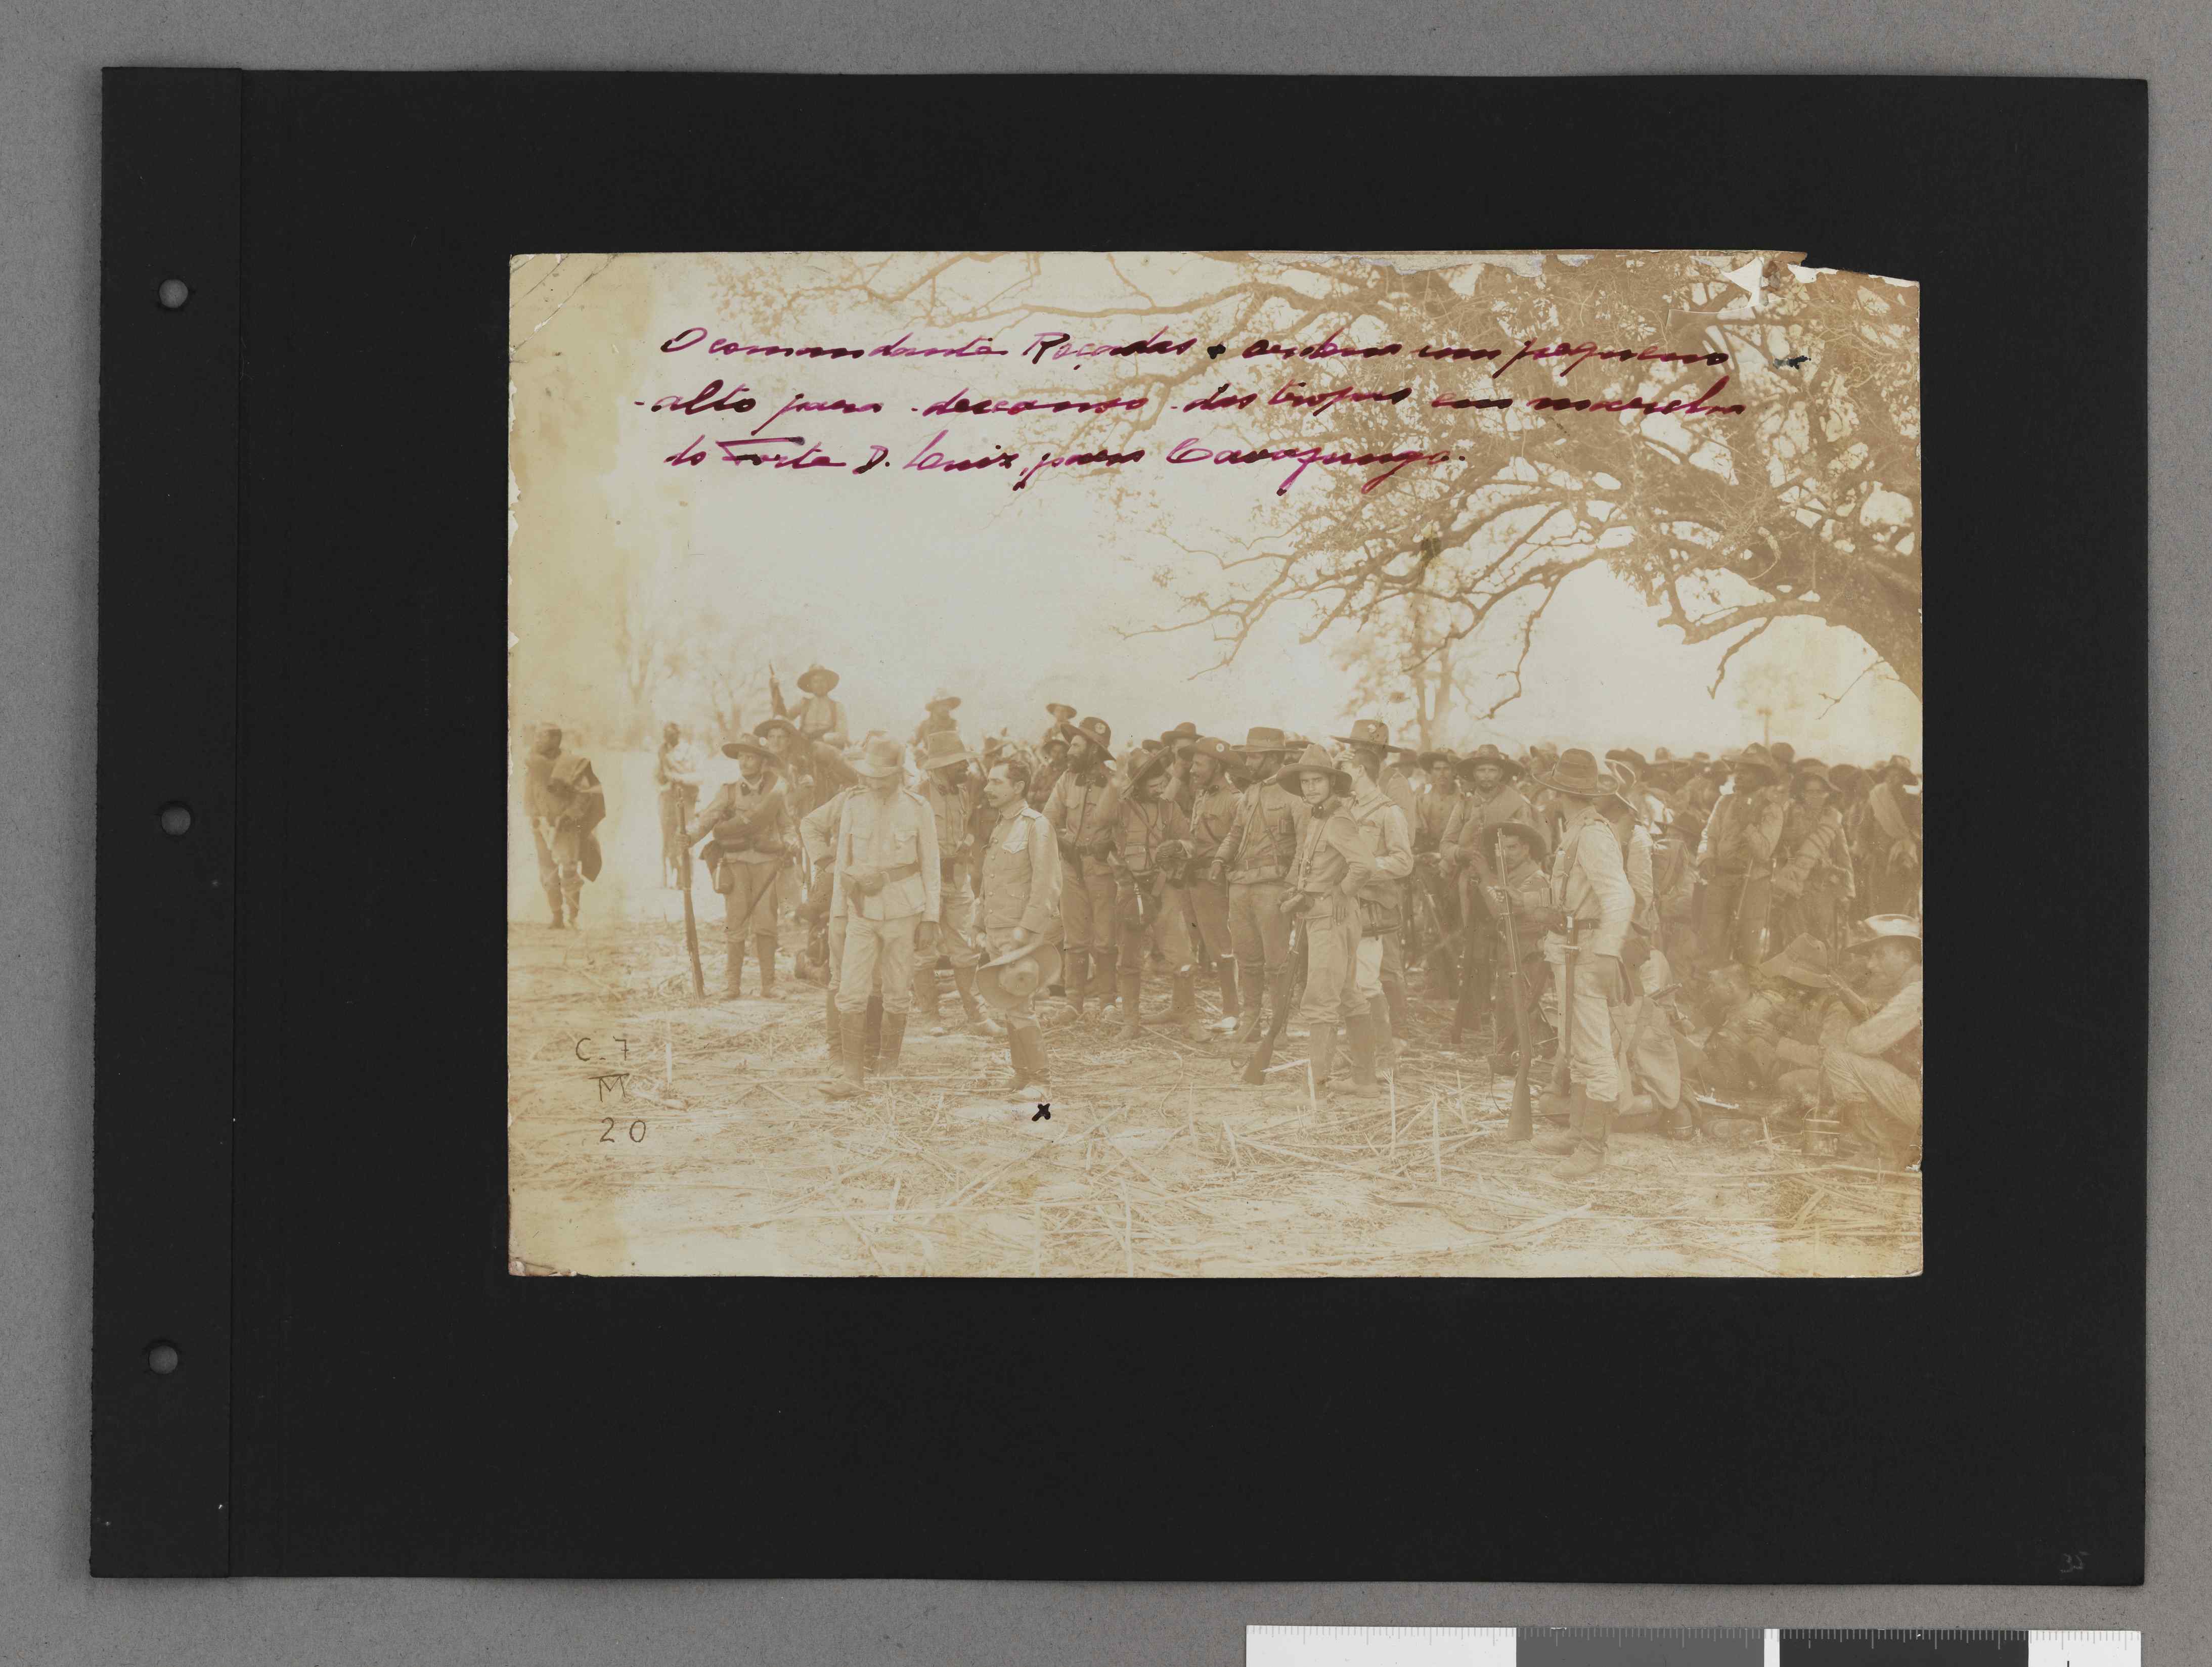 O comandante Roçadas x ordena um pequeno
alto para descanso das tropas em marcha
do Forte D. Luiz, para Cavafungo.
C-7
M
20
x
35